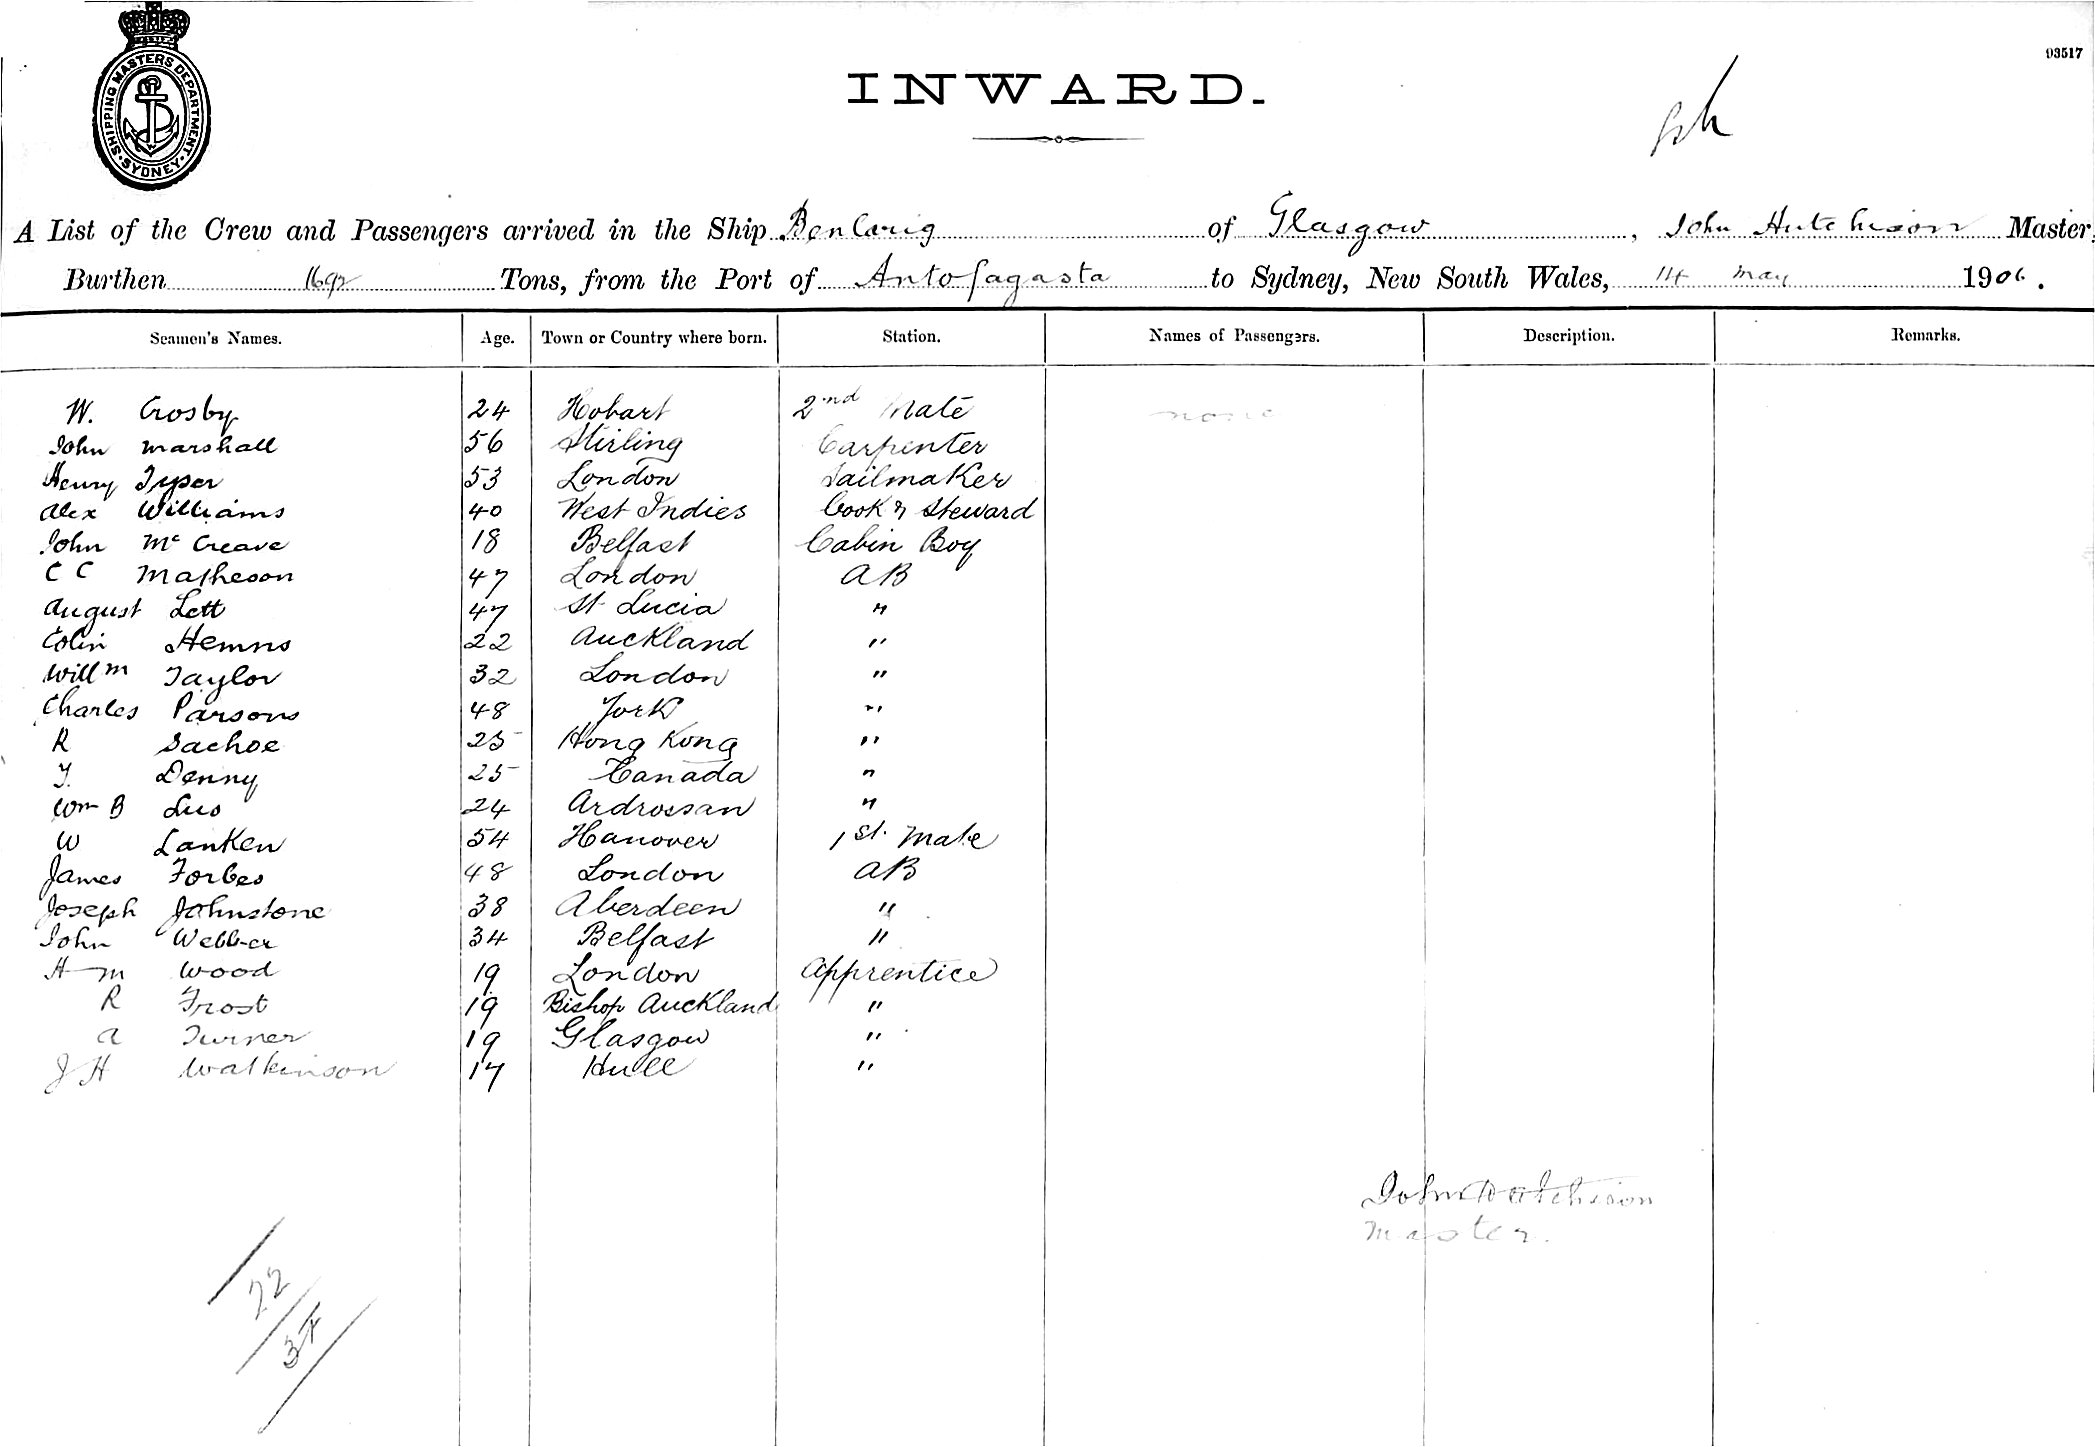 SHIPPING MASTERS DEPARTMENT. SYDNEY.
93517
INWARD.
A List of the Crew and Passengers arrived in the Ship Benlarig of Glasgow, John Hutchison Master,
Burthen 1692 Tons, from the Port of Antofagasta to Sydney, New South Wales, 14 May 1906.
Seamen's Names. Age. Town or Country where born. Station. Names of Passengers. Description. Remarks.
W. Crosby 24 Hobart 2nd Mate none
John Marshall 56 Stirling Carpenter
Henry Tyser 53 London Sailmaker
Alex Williams 40 West Indies Cook & Steward
John McCreave 18 Belfast Cabin Boy
C C Matheson 47 London AB
August Lett 47 St Lucia "
Colin Hemns 22 Auckland "
Willm Taylor 32 London "
Charles Parsons 48 York "
R Sachoe 25 Hong Kong "
T. Denny 25 Canada "
Wm B 24 Ardrossan "
W Lanken 54 Hanover 1st Mate
James Forbes 48 London AB
Joseph Johnstone 38 Aberdeen "
John Webber 34 Belfast "
H M Wood 19 London Apprentice
R Frost 19 Bishop Auckland "
A Turner 19 Glasgow "
J H Watkinson 17 Hull "
John Hutchison
Master.
22